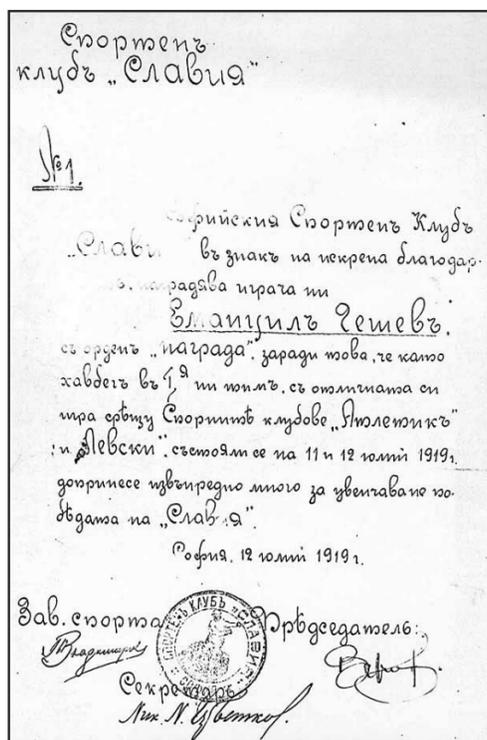 Спортенъ
клубъ „Славия“
№ 1.
Софийския Спортенъ Клубъ
„Слави въ знакъ на искрена благодар-
наградява играча ни
Емануилъ Гешевъ,
съ орденъ „награда“, заради това, че като
хавбегъ въ I,я ни тимъ, съ отличната си
игра срѣщу Спортнитѣ клубове „Атлетикъ“
и „Левски“, състояли се на 11 и 12 юлий 1919 г.
допринесе извънредно много за увенчаване по-
бѣдата на „Славия“.
София, 12 юлий 1919 г.
Зав. спорта Прѣдседатель:
СПОРТЕНЪ КЛУБЪ „СЛАВИЯ“
Секретарь
Ник. Н. Цвѣтков.